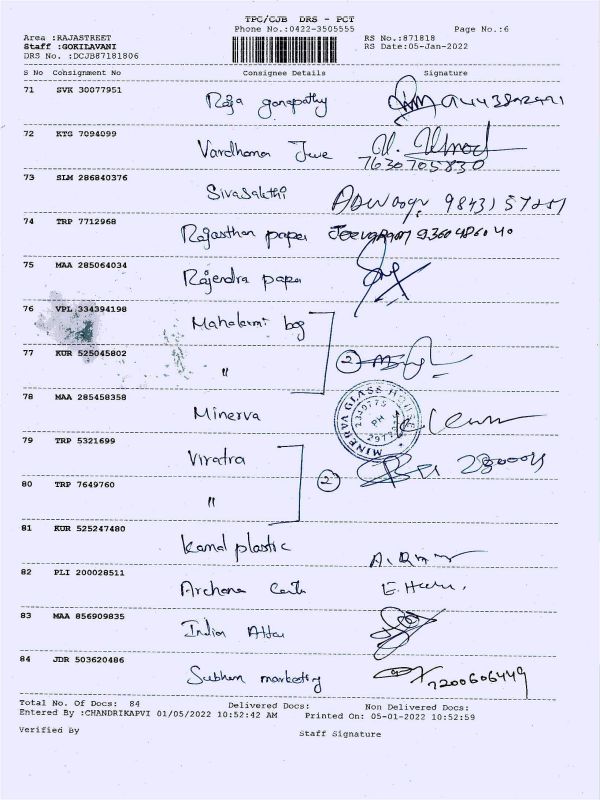 TPC/CJB DRS - PCT
Phone No.:0422-3505555 Page No.:6
Area :RAJASTREET RS No.:871818
Staff :GOKILAVANI RS Date:05-Jan-2022
DRS No. :DCJB87181806
S No Consignment No Consignee Details Signature
71 SVK 30077951
Raja ganapathy
72 KTG 7094099
Vardhaman
7630705830
73 SLM 286840376
Sivasakthi
74 TRP 7712968
Rajasthan paper
75 MAA 285064034
Rajendra paper
76 VPL 334394198
Mahalaxmi bag
77 KUR 525045802
" 2
78 MAA 285458358
Minerva MINERVA GLASS HOUSE PH
79 TRP 5321699
Viratra
80 TRP 7649760
" 2
81 KUR 525247480
Kamal plastic
82 PLI 200028511
Archana
83 MAA 856909835
Indian
84 JDR 503620486
Subham marketing 7200606449
Total No. Of Docs: 84 Delivered Docs: Non Delivered Docs:
Entered By :CHANDRIKAPVI 01/05/2022 10:52:42 AM Printed On: 05-01-2022 10:52:59
Verified By Staff Signature